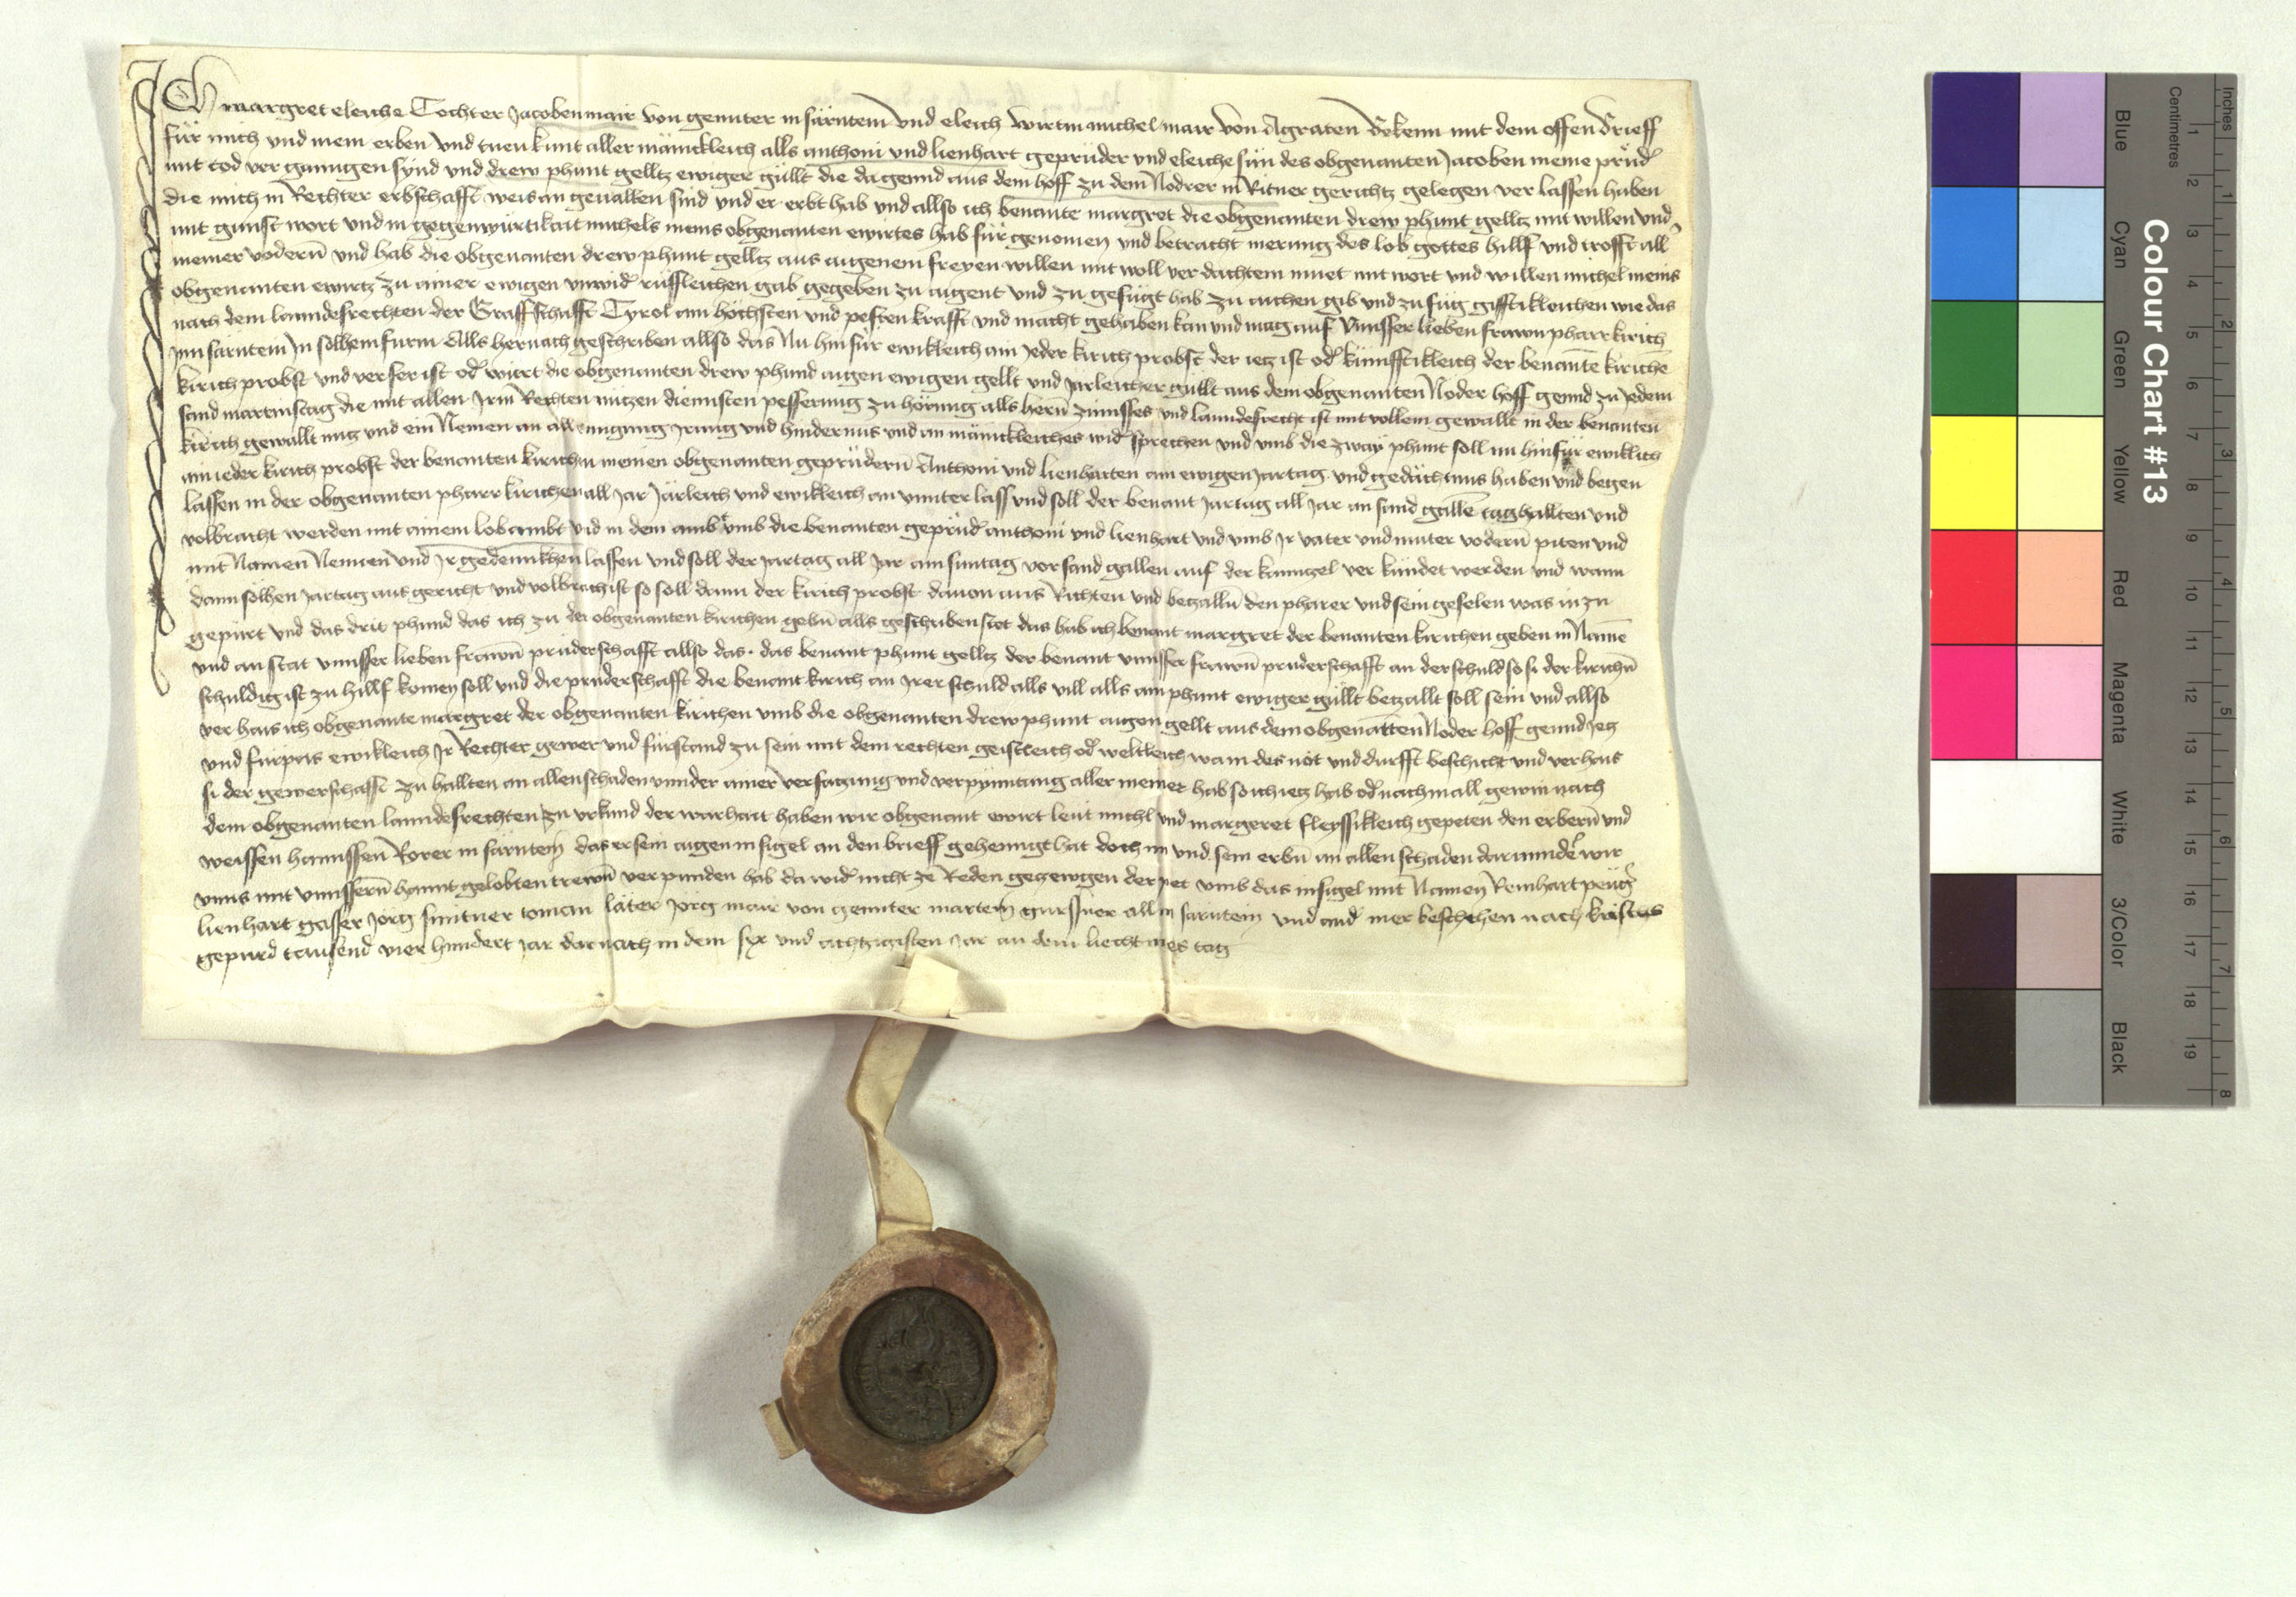 Ich margret eleiche Tochter Jacoben mair von gennter in särntein und eleich wirtin michel mair von Agraten Bekenn mit dem offen brieff
für mich und mein erben und tuen kunt aller mänickleich alls anthoni und lienhart geprüder und eleiche sün des obgenanten Jacoben meine prüd
mit tod ver ganngen synd und drew phunt gelltz ewiger güllt die da gennd aus dem hoff zu dem Nodrer in Ritner gerichtz gelegen ver lassen haben
die mich in Rechter erbschafft weis an geuallen sind und er erbt hab und allso ich benante margret die obgenanten drew phunt gelltz mit willen und
mit gunst wort und in gegenwürtikait michels meins obgenanten ewirtes hab für genomen und betracht merung des lob gottes hillf und trosst all
meiner vodern und hab die obgenanten drew phunt gelltz aus aigenem freyen willen mit woll ver dachtem muet mit wort und willen michel meins
obgenanten ewirtz zu ainer ewigen unwid rüffleichen gab gegeben zu aigent und zu gefügt hab zu aichen gib und zu füg gifftikleichen wie das
nach dem lanndesrechten der Graffschafft Tyrol am höchsten und pesten krafft und macht gehaben kan und mag auf Unnsser lieben frawn pharrkirich
Inn särntein In solhem furm Alls hernach geschriben allso das Nu hin für ewikleich ain Jeder kirich probst der ietz ist od künfftikleich der benante kirichen
kirich probst und verser ist od wirt die obgenanten drew phund aigen ewigen gellt und Jarleicher güllt aus dem obgenanten Noder hoff gennd zu Jedem
sand martinstag die mit allen Irm Rechten nützen diennsten pesserung zu hörung alls hern zinnsses und lanndesrecht ist mit vollem gewallt in der benanten
kirich gewallt nutz und ein Nemen an all ennigung Irrung und hindernus und an mänickleiches wid sprechen und umb die zway phunt soll nu hinfür ewiklich
ain ieder kirich probst der benanten kirichen meinen obgenanten geprüdern Anthoni und lienharten ain ewigen Jartag und gedächtnus haben und begen
lassen in der obgenanten pharr kirichen all Jar Järleich und ewikleich an unnter lass und soll der benant Jartag all Jar an sand gallen tag hallten und
volbracht werden mit ainem lobambt und in dem ambt umb die benanten geprüd anthoni und lienhart und umb Ir vater und muter vodern piten und
mit Namen Nennen und Ir gedennkhen lassen und soll der Jartag all Jar am suntag vor sand gallen auf der kanntzel ver kündet werden und wann
dann sölhen Jartag aus gericht und volbracht ist so soll dann der kirich probst dauon aus Richten und betzallen den pharer und sein geselen was in zu
gepürt und das drit phund das ich zu der obgenanten kirichen geben alls geschriben stet das hab ich benant margret der benanten kirichen geben in Namen
und an stat unnsser lieben frawn prüderschafft allso das das benant phunt gelltz der benant unnsser frawn pruderschafft an der schuld so si der kirichen
schuldig ist zu hillf komen soll und die pruderschafft die benant kirich an Irer schuld alls vill alls ain phunt ewiger güllt betzallt soll sein und allso
ver hais ich obgenante margret der obgenanten kirichen umb die obgenanten drew phunt aigen gellt aus dem obgenanten Noder hoff gennd Jetz
und fürpas ewikleich Ir Rechter gewer und fürstand zu sein mit dem rechten geistleich od weltleich wann des nöt und durfft beschicht und verhais
si der gewerschafft zu hallten an allen schaden unnder ainer versatzung und verpynntung aller meiner hab so ich ietz hab od nachmall gewin nach
dem obgenanten lanndesrechten zu urkund der warhait haben wir obgenant ewirt leut michl und margeret fleyssikleich gepeten den erbern und
weissen hannssen Rorer in särntein das er sein aigen insigel an den brieff gehenngt hat doch im und sein erben an allen schaden darunnder wir
unns mit unnssern hannt gelobten trewen ver punden hab da wid nicht ze Reden getzewgen der pet umb das insigel mit Namen Reinhart
lienhart gasser Jörg simtner toman läter Jörg mair von gennter martein gurssner all in särntein und and mer beschehen nach kristus
gepurd tausend vier hundert Jar darnach in dem sex und achtzigisten Jar an dem liecht mes tag
Colour Chart #13
Blue
Cyan
Green
Yellow
Red
Magenta
White
3/Color
Black
Centimetres
Inches
1 2 3 4 5 6 7 8 9 10 11 12 13 14 15 16 17 18 19
1 2 3 4 5 6 7 8